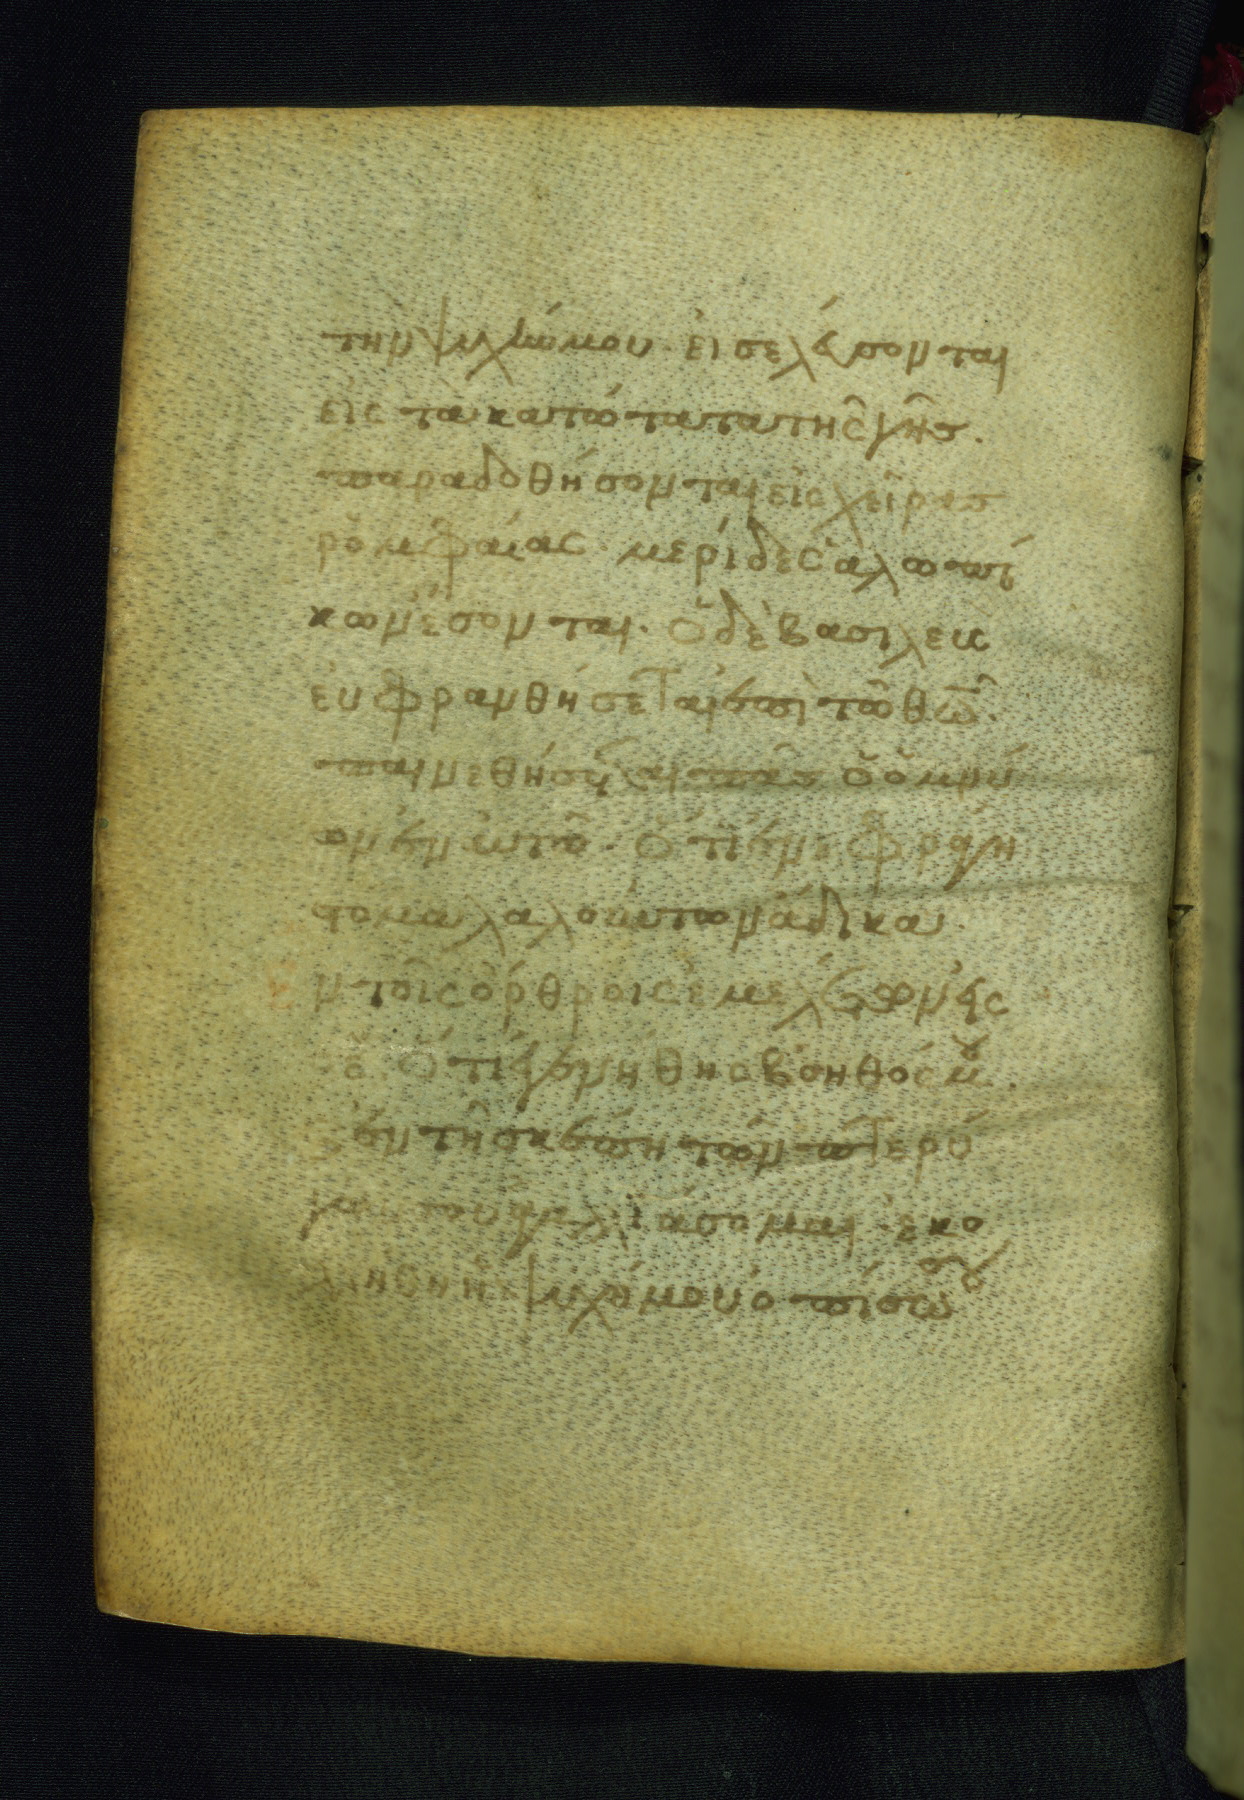 τὴν ψυχήν μου· εἰσελεύσονται
εἰς τὰ κατώτατα τῆς γῆς·
παραδοθήσονται εἰς χεῖρας
ῥομφαίας· μερίδες ἀλωπέ
κων ἔσονται· Ὁ δὲ βασιλεὺς
εὐφρανθήσεται ἐπὶ τῷ θῶ·
ἐπαινεθήσεται πᾶς ὁ ὀμνύ
ων ἐν αὐτῶ· Ὅτι ἐνεφράγη
στόμα λαλούντων ἄδικα·
ὄρθροις ἐμελέτων εἰς
σέ· Ὅτι ἐγενήθης βοηθός μου·
ἐν τῇ σκέπῃ τῶν πτερύ
γων σου ἀγαλλιάσομαι· ἐκολ
λήθη ἡ ψυχή μου ὀπίσω